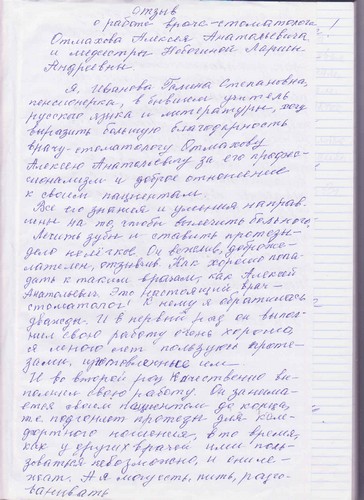 Отзыв
о работе врача-стоматолога
Отмахова Алексея Анатольевича
и медсестры Небогиной Ларисы
Андреевны
Я, Иванова Галина Степановна,
пенсионерка, в бывшем учитель
русского языка и литературы, хочу
выразить большую благодарность
врачу-стоматологу Отмахову
Алексею Анатольевичу за его профес-
сионализм и доброе отношение
к своим пациентам.
Все его знания и умения направ-
лены на то, чтобы вылечить больного.
Лечить зубы и ставить протезы-
дело нелёгкое. Он вежлив, доброже-
лателен, отзывчив. Как хорошо попа-
дать к таким врачам, как Алексей
Анатольевич. Это настоящий врач-
стоматолог! К нему я обратилась
дважды. И в первый раз он выпол-
нил свою работу очень хорошо,
я много лет пользуюсь проте-
зами, изготовленные им.
И во второй раз качественно вы-
полнил свою работу. Он занима-
ется своим пациентом до конца,
т.е. подгоняет протезы для ком-
фортного ношения, в то время,
как у других врачей ими поль-
зоваться невозможно, и они ле-
жат. А я могу есть, пить, разго-
варивать